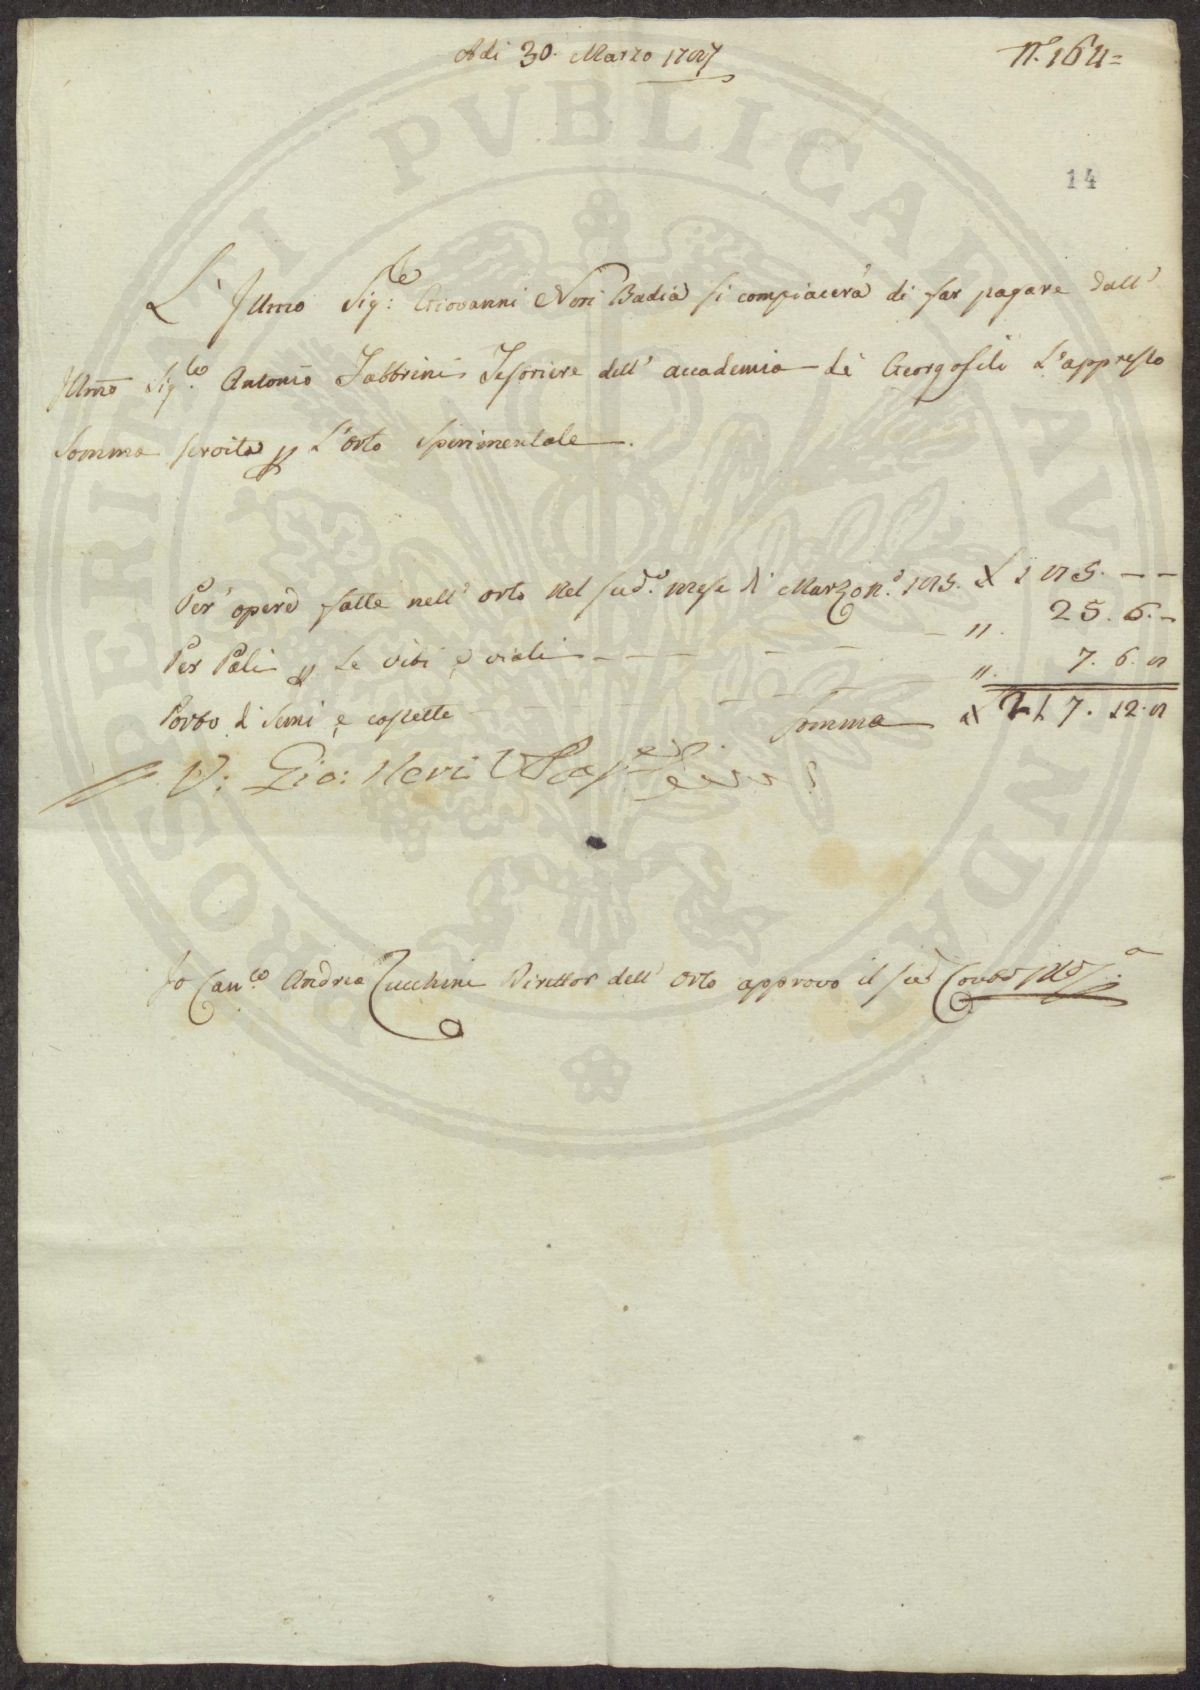 Adi 30. Marzo 1787
N.° 164=
14
L' Illmo Sig:re Giovanni Neri Badia si compiacerà di far pagare dall'
Illmo Sig.re Antonio Fabbrini Tesoriere dell' accademia de Georgofili L'appresto
Somma servita p L'Orto Sperimentale.
Per opere fatte nell' orto Nel sud.° mese di Marzo n.° 185. £ 185. - -
Per Pali p Le viti e viali - - - - - " 25. 6. -
Porto di Semi e cassette - - - - " 7. 6. 8
Somma £ 217. 12. 8
V: Gio: Neri
Io Can.co Andrea Zucchini Direttor dell' Orto approvo il sud
PROSPERITATI PVBLICAE AVGENDAE